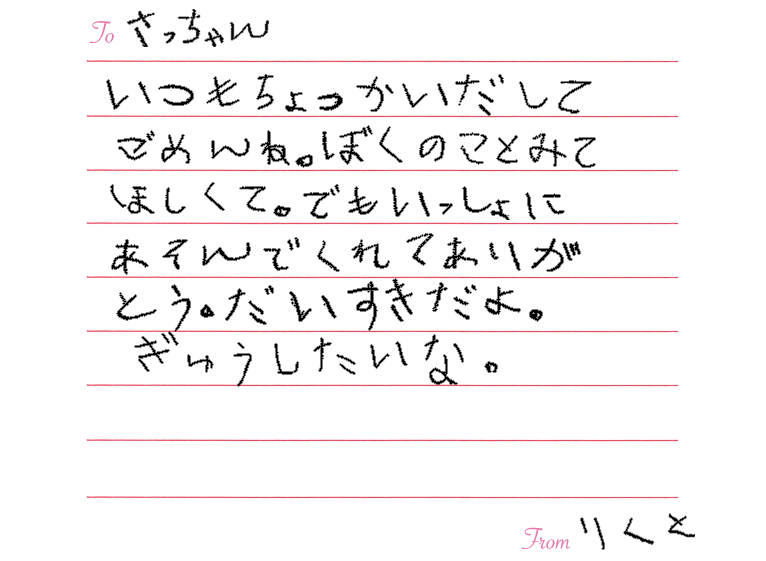 To さっちゃん
いつもちょっかいだして
ごめんね。ぼくのことみて
ほしくて。でもいっしょに
あそんでくれてありが
とう。だいすきだよ。
ぎゅうしたいな。
From りくと